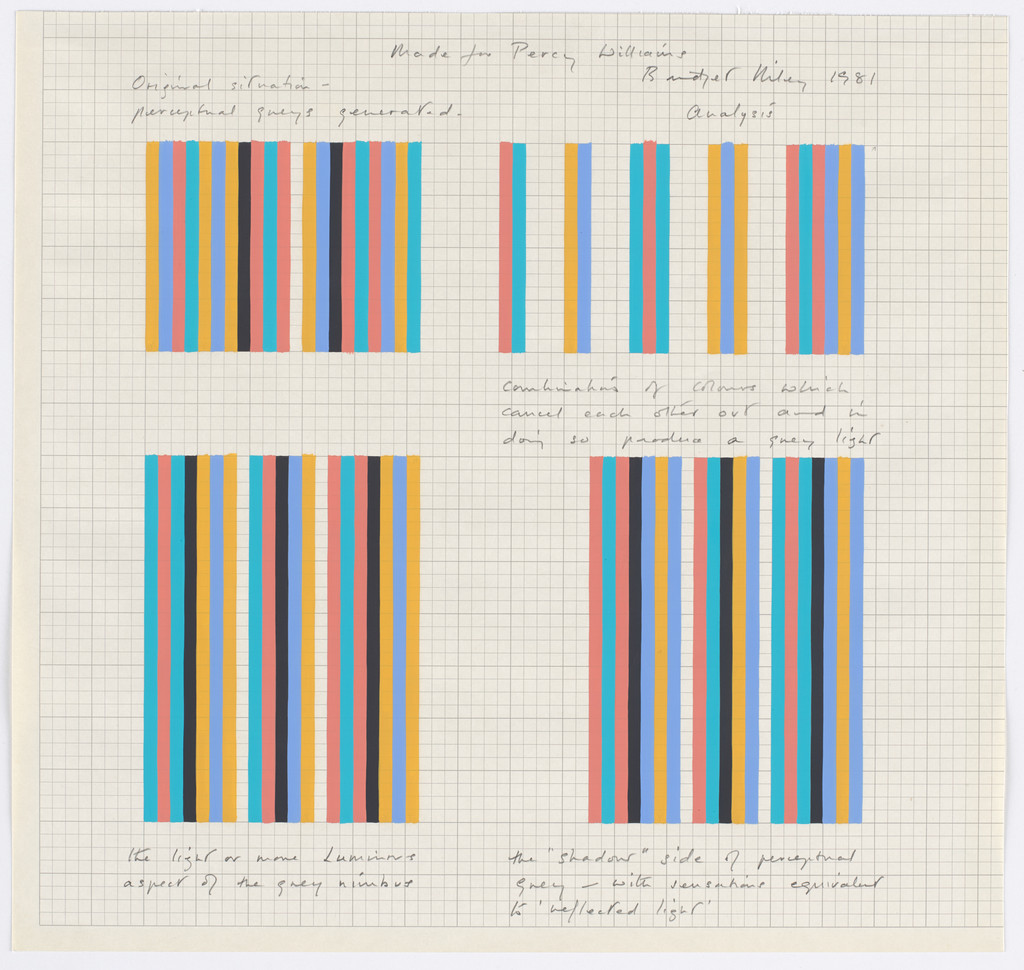 Made for Percy Williams
Bridget Riley 1981
Original situation -
perceptual greys generated.
Analysis
Combinations of colours which
cancel each other out and in
doing so produce a grey light
the light or more Luminous
aspect of the grey nimbus
the "shadow" side of perceptual
grey – with sensations equivalent
to 'reflected light'